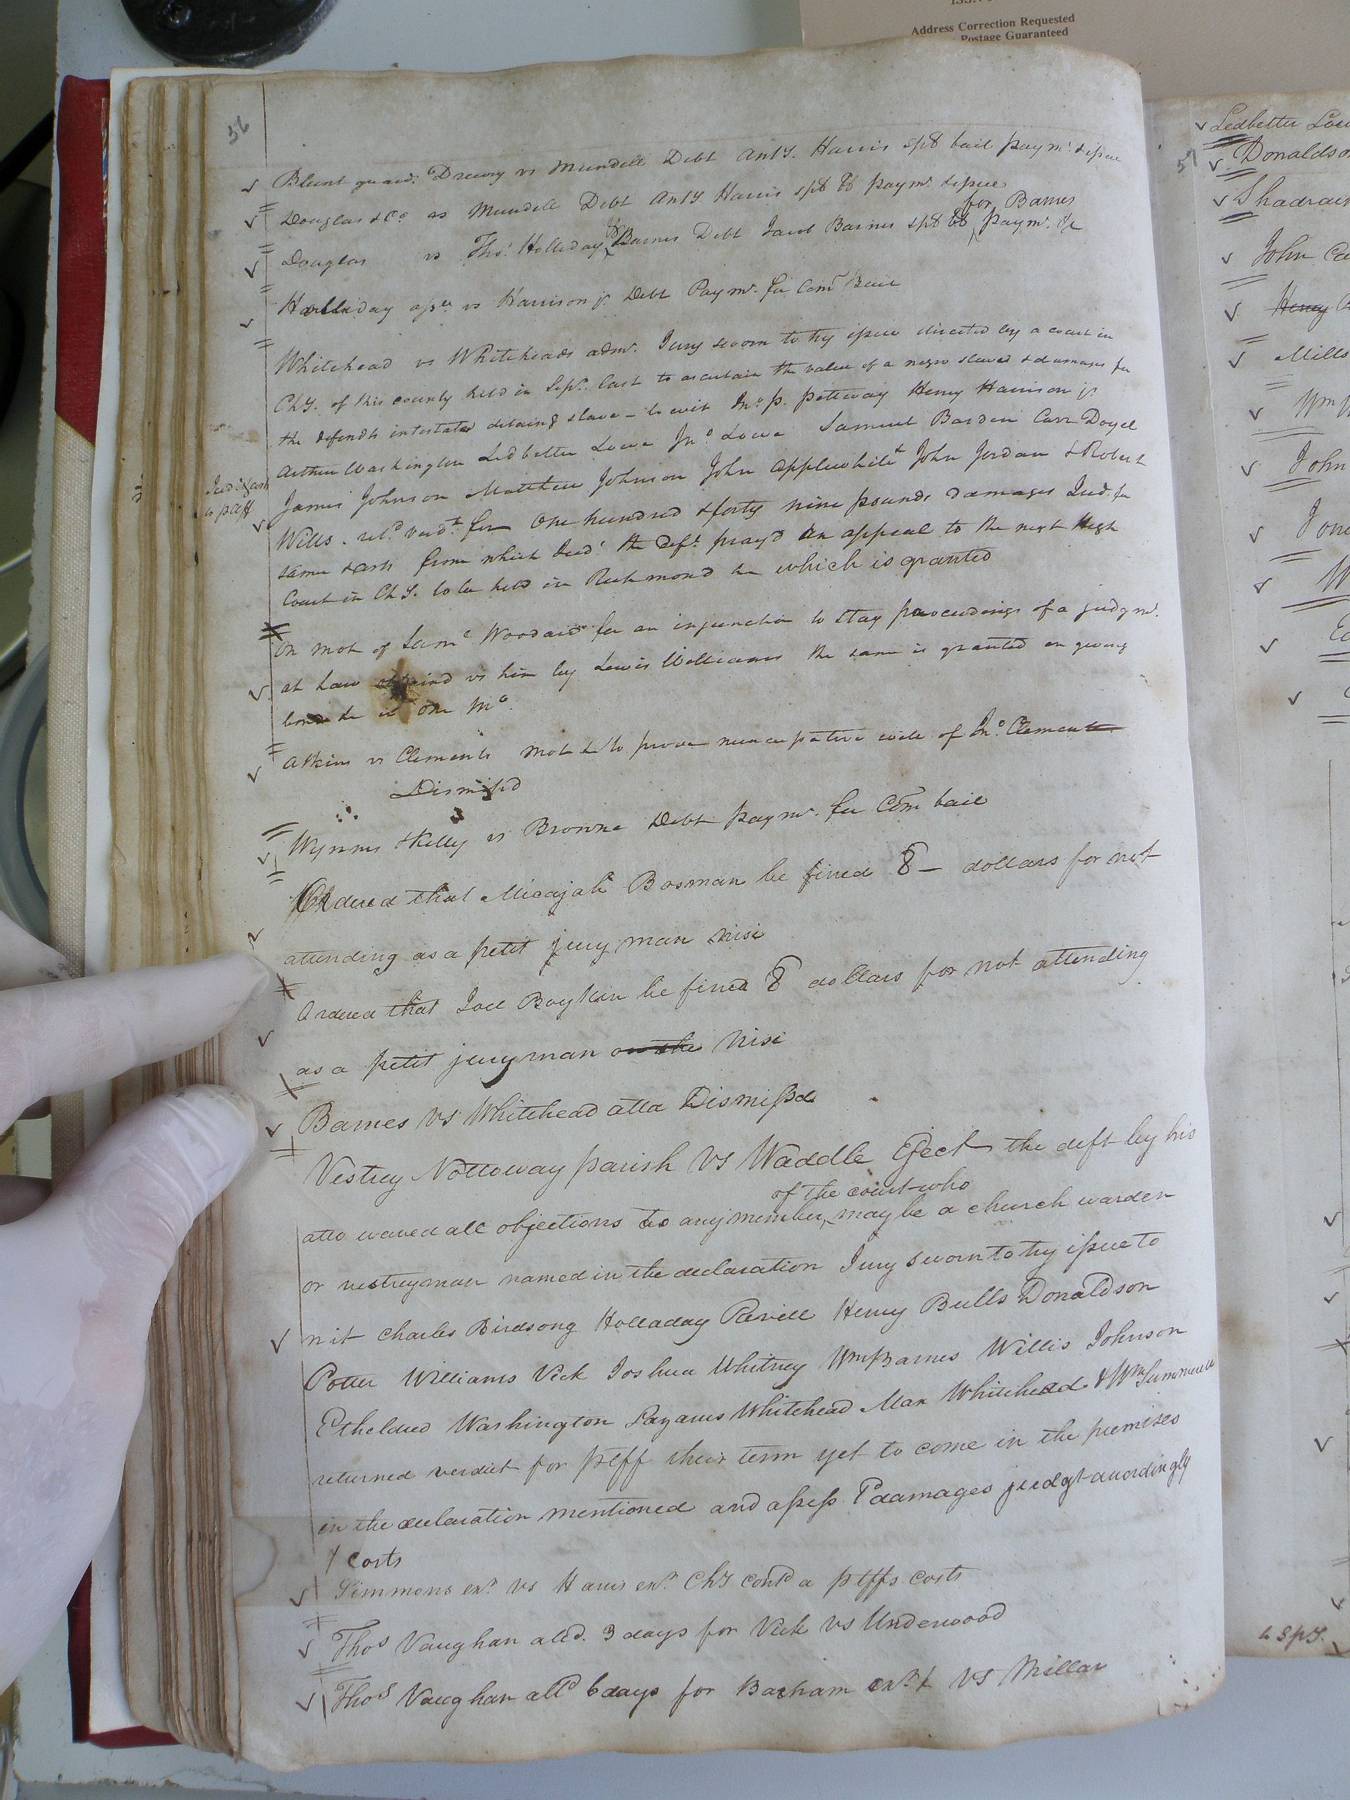 Address Correction Requested
Postage Guaranteed
56
Blunt guard. Drewry vs Mundell Debt Anty. Harris spb bail paymt. & issue
Douglas & Co. vs Mundell Debt Anty Harris spb bb paymt. & issue
for Barnes
Douglas vs Thos. Holladay & Barnes Debt Jacob Barnes spb bb paymt. &c
Holladay vs Harrison jr. Debt Paymt. for Com Bail
Whitehead vs Whiteheads admr. Jury sworn to try issue directed by a court in
Chy. of this county held in Sept. last to ascertain the value of a negro slave & damages for
the defendts intestates detaing slave – to wit Jno. P. Petteway Henry Harrison jr
Arthur Washington Ledbetter Lowe Jno. Lowe Samuel Barden Carr Doyel
James Johnson Matthew Johnson John Applewhite John Jordan & Robert
Wills. retd. verdt. for One hundred & forty nine pounds damages Jud. for
same & costs from which Jud. the deft. prayd an appeal to the next High
Court in Chy. to be held in Richmond &c which is granted
On mot of Saml Woodard for an injunction to stay proceedings of a judgmt.
at Law obtaind vs him by Lewis Williams the same is granted on giving
bond &c in one Mo.
Atkins vs Clements Mot &c to prove nuncupative will of Jno. Clements
Dismissd
Wynns & Kelly vs Browne Debt paymt. for Com bail
Ordered that Micajah Bosman be fined 8 – dollars for not
attending as a petit jury man nisi
Ordered that Joel Boykin be fined 8 dollars for not attending
as a petit jury man on the Nisi
Barnes vs Whitehead atta Dismissd
Vestry Nottoway parish vs Waddle Eject the deft by his
of the court who
atto waved all objections to any member may be a church warden
or vestryman named in the declaration Jury sworn to try issue to
wit Charles Birdsong Holladay Revell Henry Bulls Donaldson
Potter Williams Vick Joshua Whitney Wm Barnes Willis Johnson
Etheldred Washington Lazarus Whitehead Max Whitehead & Wm Summerell
returned verdict for pltff their term yet to come in the premises
in the declaration mentioned and assess 1d damages judgt accordingly
& costs
Simmons exr. vs Harris exr. Chy contd a pltffs costs
Thos Vaughan alld. 3 days for Vick vs Underwood
Thos Vaughan alld 6 days for Barham exr. vs Millar
57
Ledbetter Low
Donaldso
Shadrac
John Ca
Henry
Mills
Wm
John
Jone